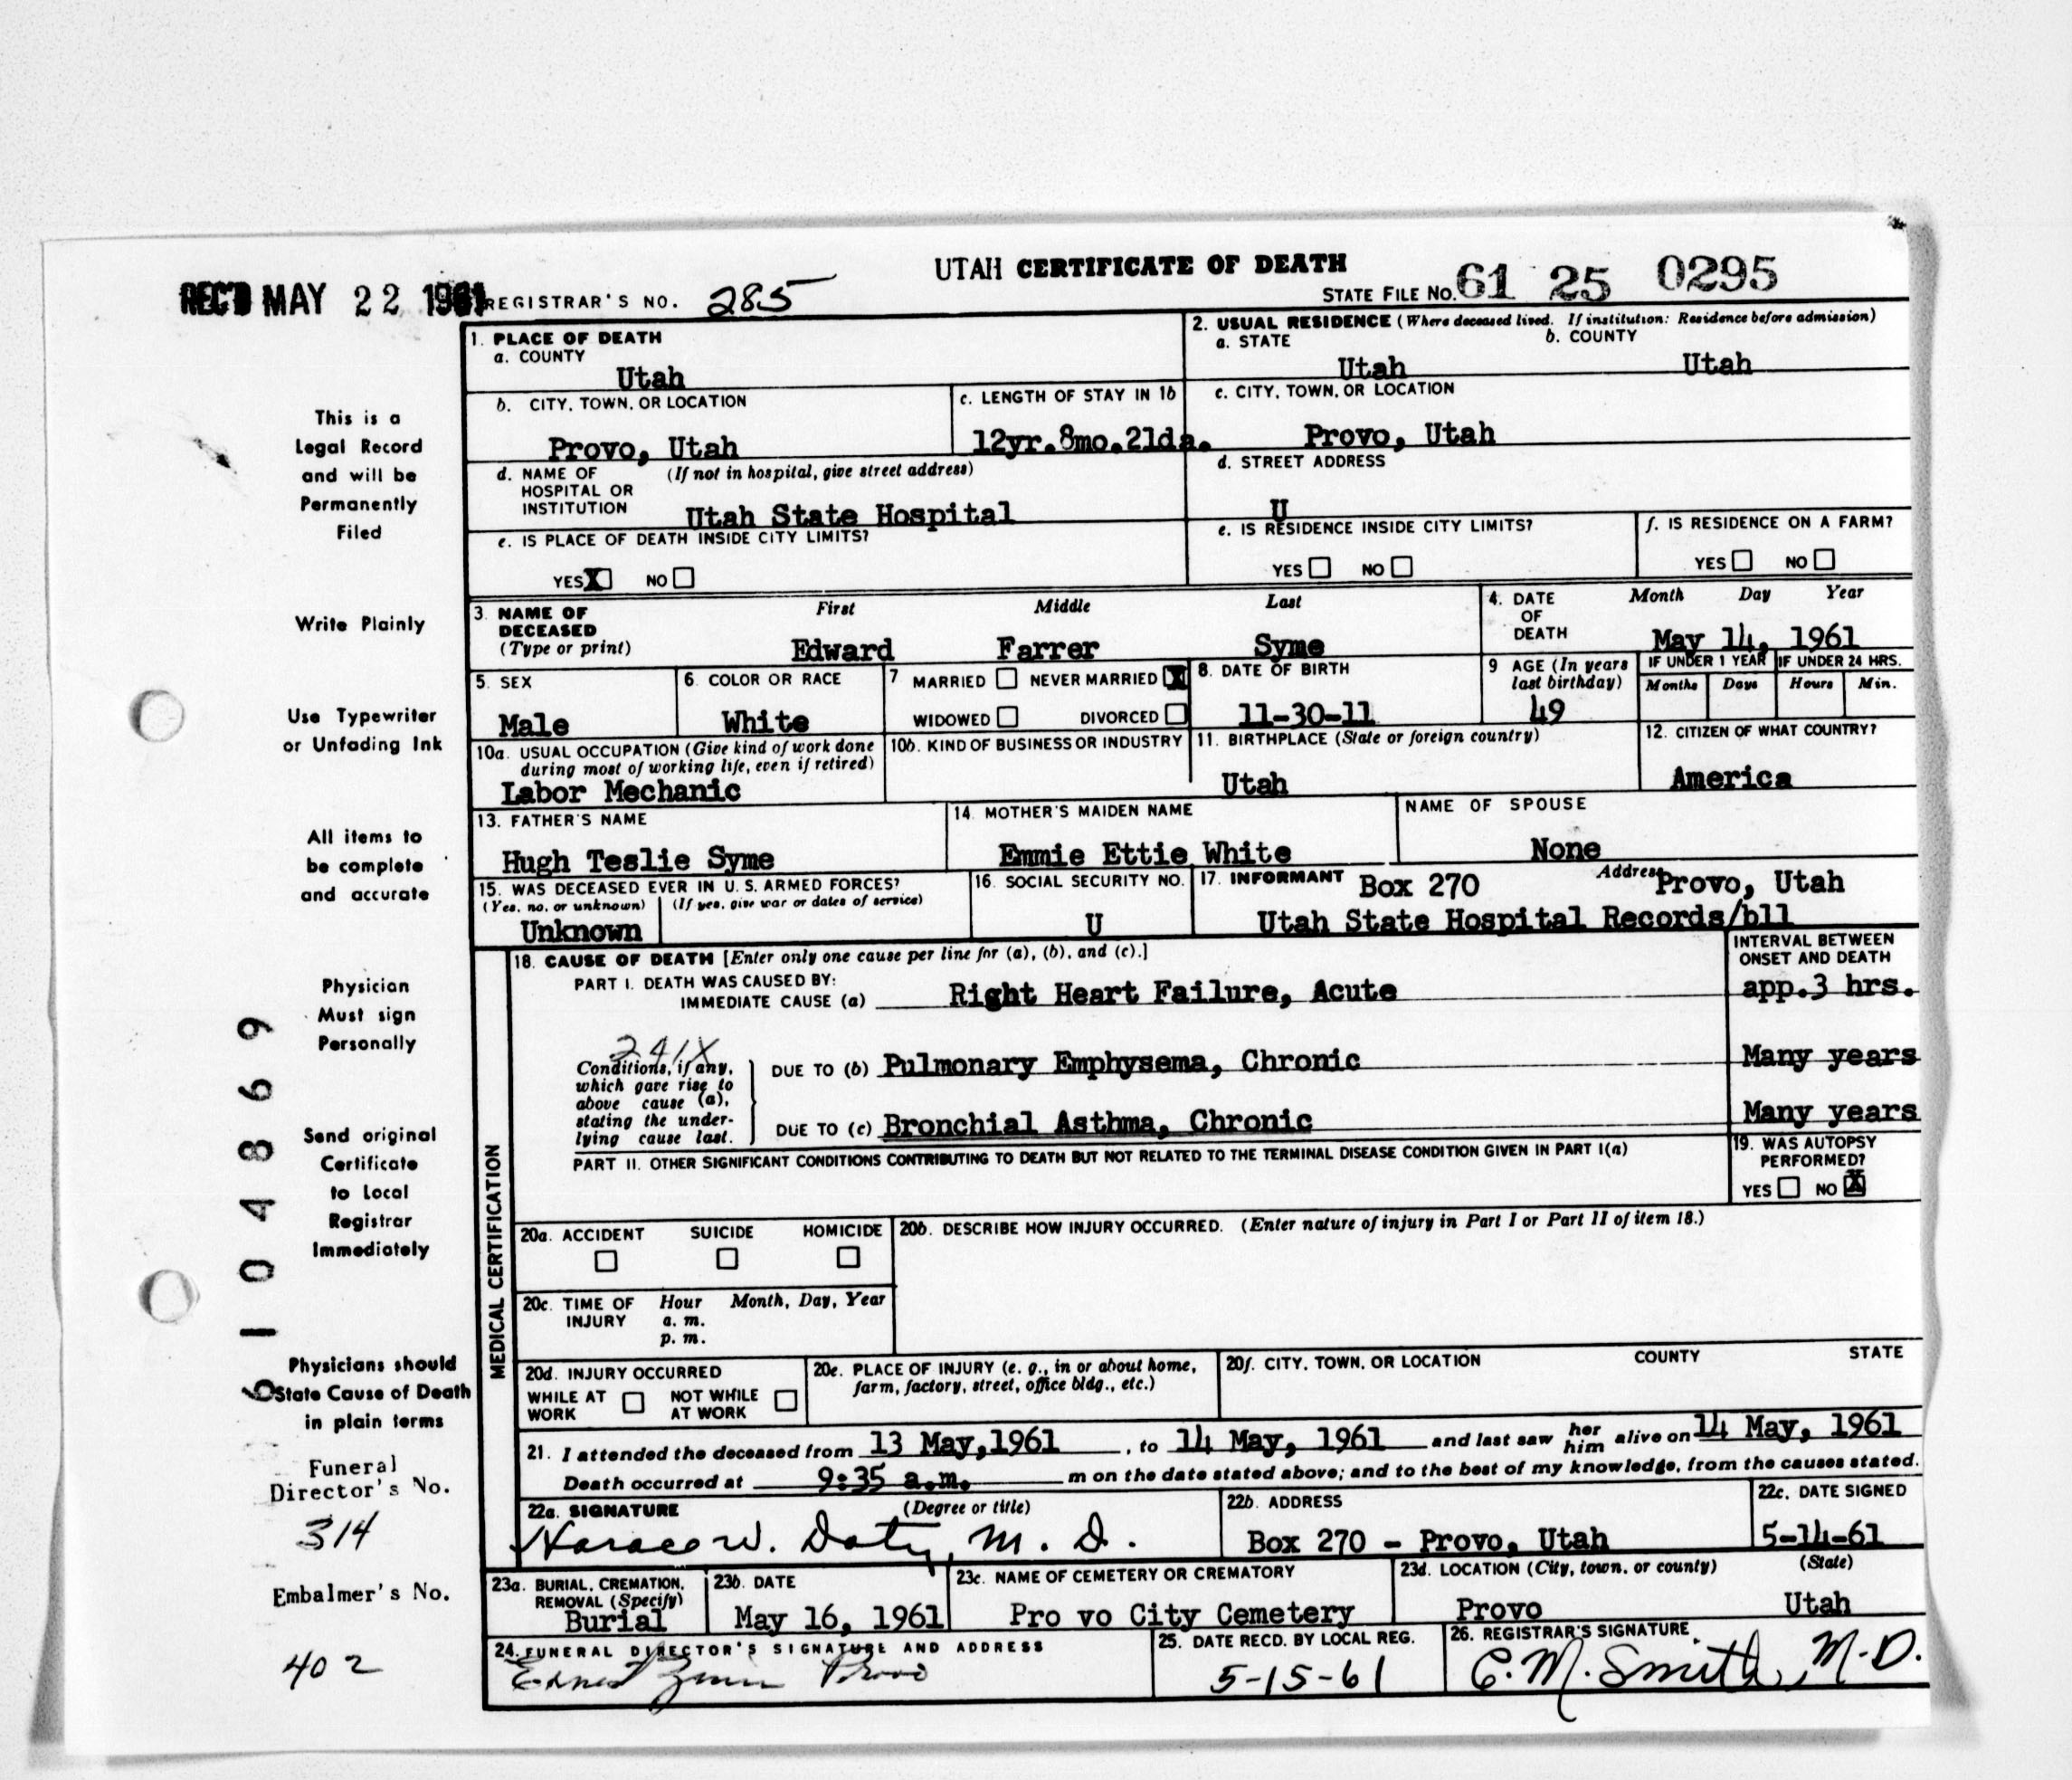 UTAH CERTIFICATE OF DEATH
REC'D MAY 22 1961 REGISTRAR'S NO. 285 STATE FILE NO. 61 25 0295
1. PLACE OF DEATH
a. COUNTY
Utah
2. USUAL RESIDENCE (Where deceased lived. If institution: Residence before admission)
a. STATE b. COUNTY
Utah Utah
b. CITY, TOWN, OR LOCATION
Provo, Utah
c. LENGTH OF STAY IN 1b
12yr.8mo.21da.
c. CITY, TOWN, OR LOCATION
Provo, Utah
d. NAME OF (If not in hospital, give street address)
HOSPITAL OR
INSTITUTION Utah State Hospital
d. STREET ADDRESS
U
e. IS PLACE OF DEATH INSIDE CITY LIMITS?
YES X NO
e. IS RESIDENCE INSIDE CITY LIMITS?
YES NO
f. IS RESIDENCE ON A FARM?
YES NO
3. NAME OF First Middle Last
DECEASED
(Type or print) Edward Farrer Syme
4. DATE Month Day Year
OF
DEATH May 14, 1961
5. SEX
Male
6. COLOR OR RACE
White
7 MARRIED NEVER MARRIED X
WIDOWED DIVORCED
8. DATE OF BIRTH
11-30-11
9 AGE (In years
last birthday)
49
IF UNDER 1 YEAR IF UNDER 24 HRS.
Months Days Hours Min.
10a. USUAL OCCUPATION (Give kind of work done
during most of working life, even if retired)
Labor Mechanic
10b. KIND OF BUSINESS OR INDUSTRY
11. BIRTHPLACE (State or foreign country)
Utah
12. CITIZEN OF WHAT COUNTRY?
America
13. FATHER'S NAME
Hugh Teslie Syme
14. MOTHER'S MAIDEN NAME
Emmie Ettie White
NAME OF SPOUSE
None
15. WAS DECEASED EVER IN U. S. ARMED FORCES?
(Yes, no, or unknown) (If yes, give war or dates of service)
Unknown
16. SOCIAL SECURITY NO.
U
17. INFORMANT Box 270 Address Provo, Utah
Utah State Hospital Records/bll
MEDICAL CERTIFICATION
18. CAUSE OF DEATH [Enter only one cause per line for (a), (b), and (c).]
INTERVAL BETWEEN
ONSET AND DEATH
PART I. DEATH WAS CAUSED BY:
IMMEDIATE CAUSE (a) Right Heart Failure, Acute app.3 hrs.
241X
Conditions, if any,
which gave rise to
above cause (a),
stating the under-
lying cause last.
DUE TO (b) Pulmonary Emphysema, Chronic Many years
DUE TO (c) Bronchial Asthma, Chronic Many years
PART II. OTHER SIGNIFICANT CONDITIONS CONTRIBUTING TO DEATH BUT NOT RELATED TO THE TERMINAL DISEASE CONDITION GIVEN IN PART I(a)
19. WAS AUTOPSY
PERFORMED?
YES NO X
20a. ACCIDENT SUICIDE HOMICIDE
20b. DESCRIBE HOW INJURY OCCURRED. (Enter nature of injury in Part I or Part II of item 18.)
20c. TIME OF Hour Month, Day, Year
INJURY a. m.
p. m.
20d. INJURY OCCURRED
WHILE AT NOT WHILE
WORK AT WORK
20e. PLACE OF INJURY (e. g., in or about home,
farm, factory, street, office bldg., etc.)
20f. CITY, TOWN, OR LOCATION COUNTY STATE
21. I attended the deceased from 13 May, 1961, to 14 May, 1961 and last saw her him alive on 14 May, 1961
Death occurred at 9:35 a.m. m on the date stated above; and to the best of my knowledge, from the causes stated.
22a. SIGNATURE (Degree or title)
Horace W. Doty, M. D.
22b. ADDRESS
Box 270 - Provo, Utah
22c. DATE SIGNED
5-14-61
23a. BURIAL, CREMATION,
REMOVAL (Specify)
Burial
23b. DATE
May 16, 1961
23c. NAME OF CEMETERY OR CREMATORY
Pro vo City Cemetery
23d. LOCATION (City, town, or county) (State)
Provo Utah
24. FUNERAL DIRECTOR'S SIGNATURE AND ADDRESS
Provo
25. DATE RECD. BY LOCAL REG.
5-15-61
26. REGISTRAR'S SIGNATURE
C. M. Smith, M.D.
This is a
Legal Record
and will be
Permanently
Filed
Write Plainly
Use Typewriter
or Unfading Ink
All items to
be complete
and accurate
Physician
Must sign
Personally
Send original
Certificate
to Local
Registrar
Immediately
Physicians should
State Cause of Death
in plain terms
Funeral
Director's No.
314
Embalmer's No.
402
6104869